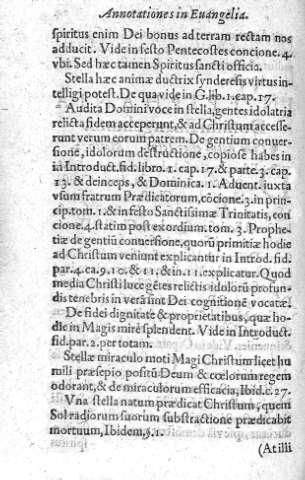 Annotationes in Euangelia.
spiritus enim Dei bonus ad terram rectam nos
adducit. Vide in festo Pentecostes concione.4.
vbi. Sed hæc tamen Spiritus sancti officia.
Stella hæc animæ ductrix synderesis virtus in-
telligi potest. De qua vide in G.lib.1.cap.17.
Audita Domini voce in stella, gentes idolatria
relicta fidem acceperunt, & ad Christum accesse-
runt verum eorum patrem. De gentium conuer-
sione, idolorum destructione, copiose habes in
in Introduct.fid.libro.1.cap.17.& parte.3.cap.
13.& deinceps, & Dominica.1.Aduent.iuxta
vsum fratrum Prædicatorum, cōcione.3.in prin-
cip.tom.1.& in festo Sanctissimæ Trinitatis, con-
cione.4.statim post exordium.tom.3.Prophe-
tiæ de gentiū conuersione, quorū primitiæ hodie
ad Christum veniunt explicantur in Introd.fid.
par.4.ca.9.10.& 11.& in.11.explicatur. Quod
media Christi luce gētes relictis idolorū profun-
dis tenebris in verā sint Dei cognitionē vocatæ.
De fidei dignitate & proprietatibus, quæ ho-
die in Magis mirè splendent. Vide in Introduct.
fid.par.2.per totam.
Stellæ miraculo moti Magi Christum licet hu
mili præsepio positū Deum & cœlorum regem
odorant, & de miraculorum efficacia, Ibid.c.27.
Vna stella natum prædicat Christum, quem
Sol radiorum suorum substractione prædicabit
mortuum, Ibidem.§.1.
(At illi